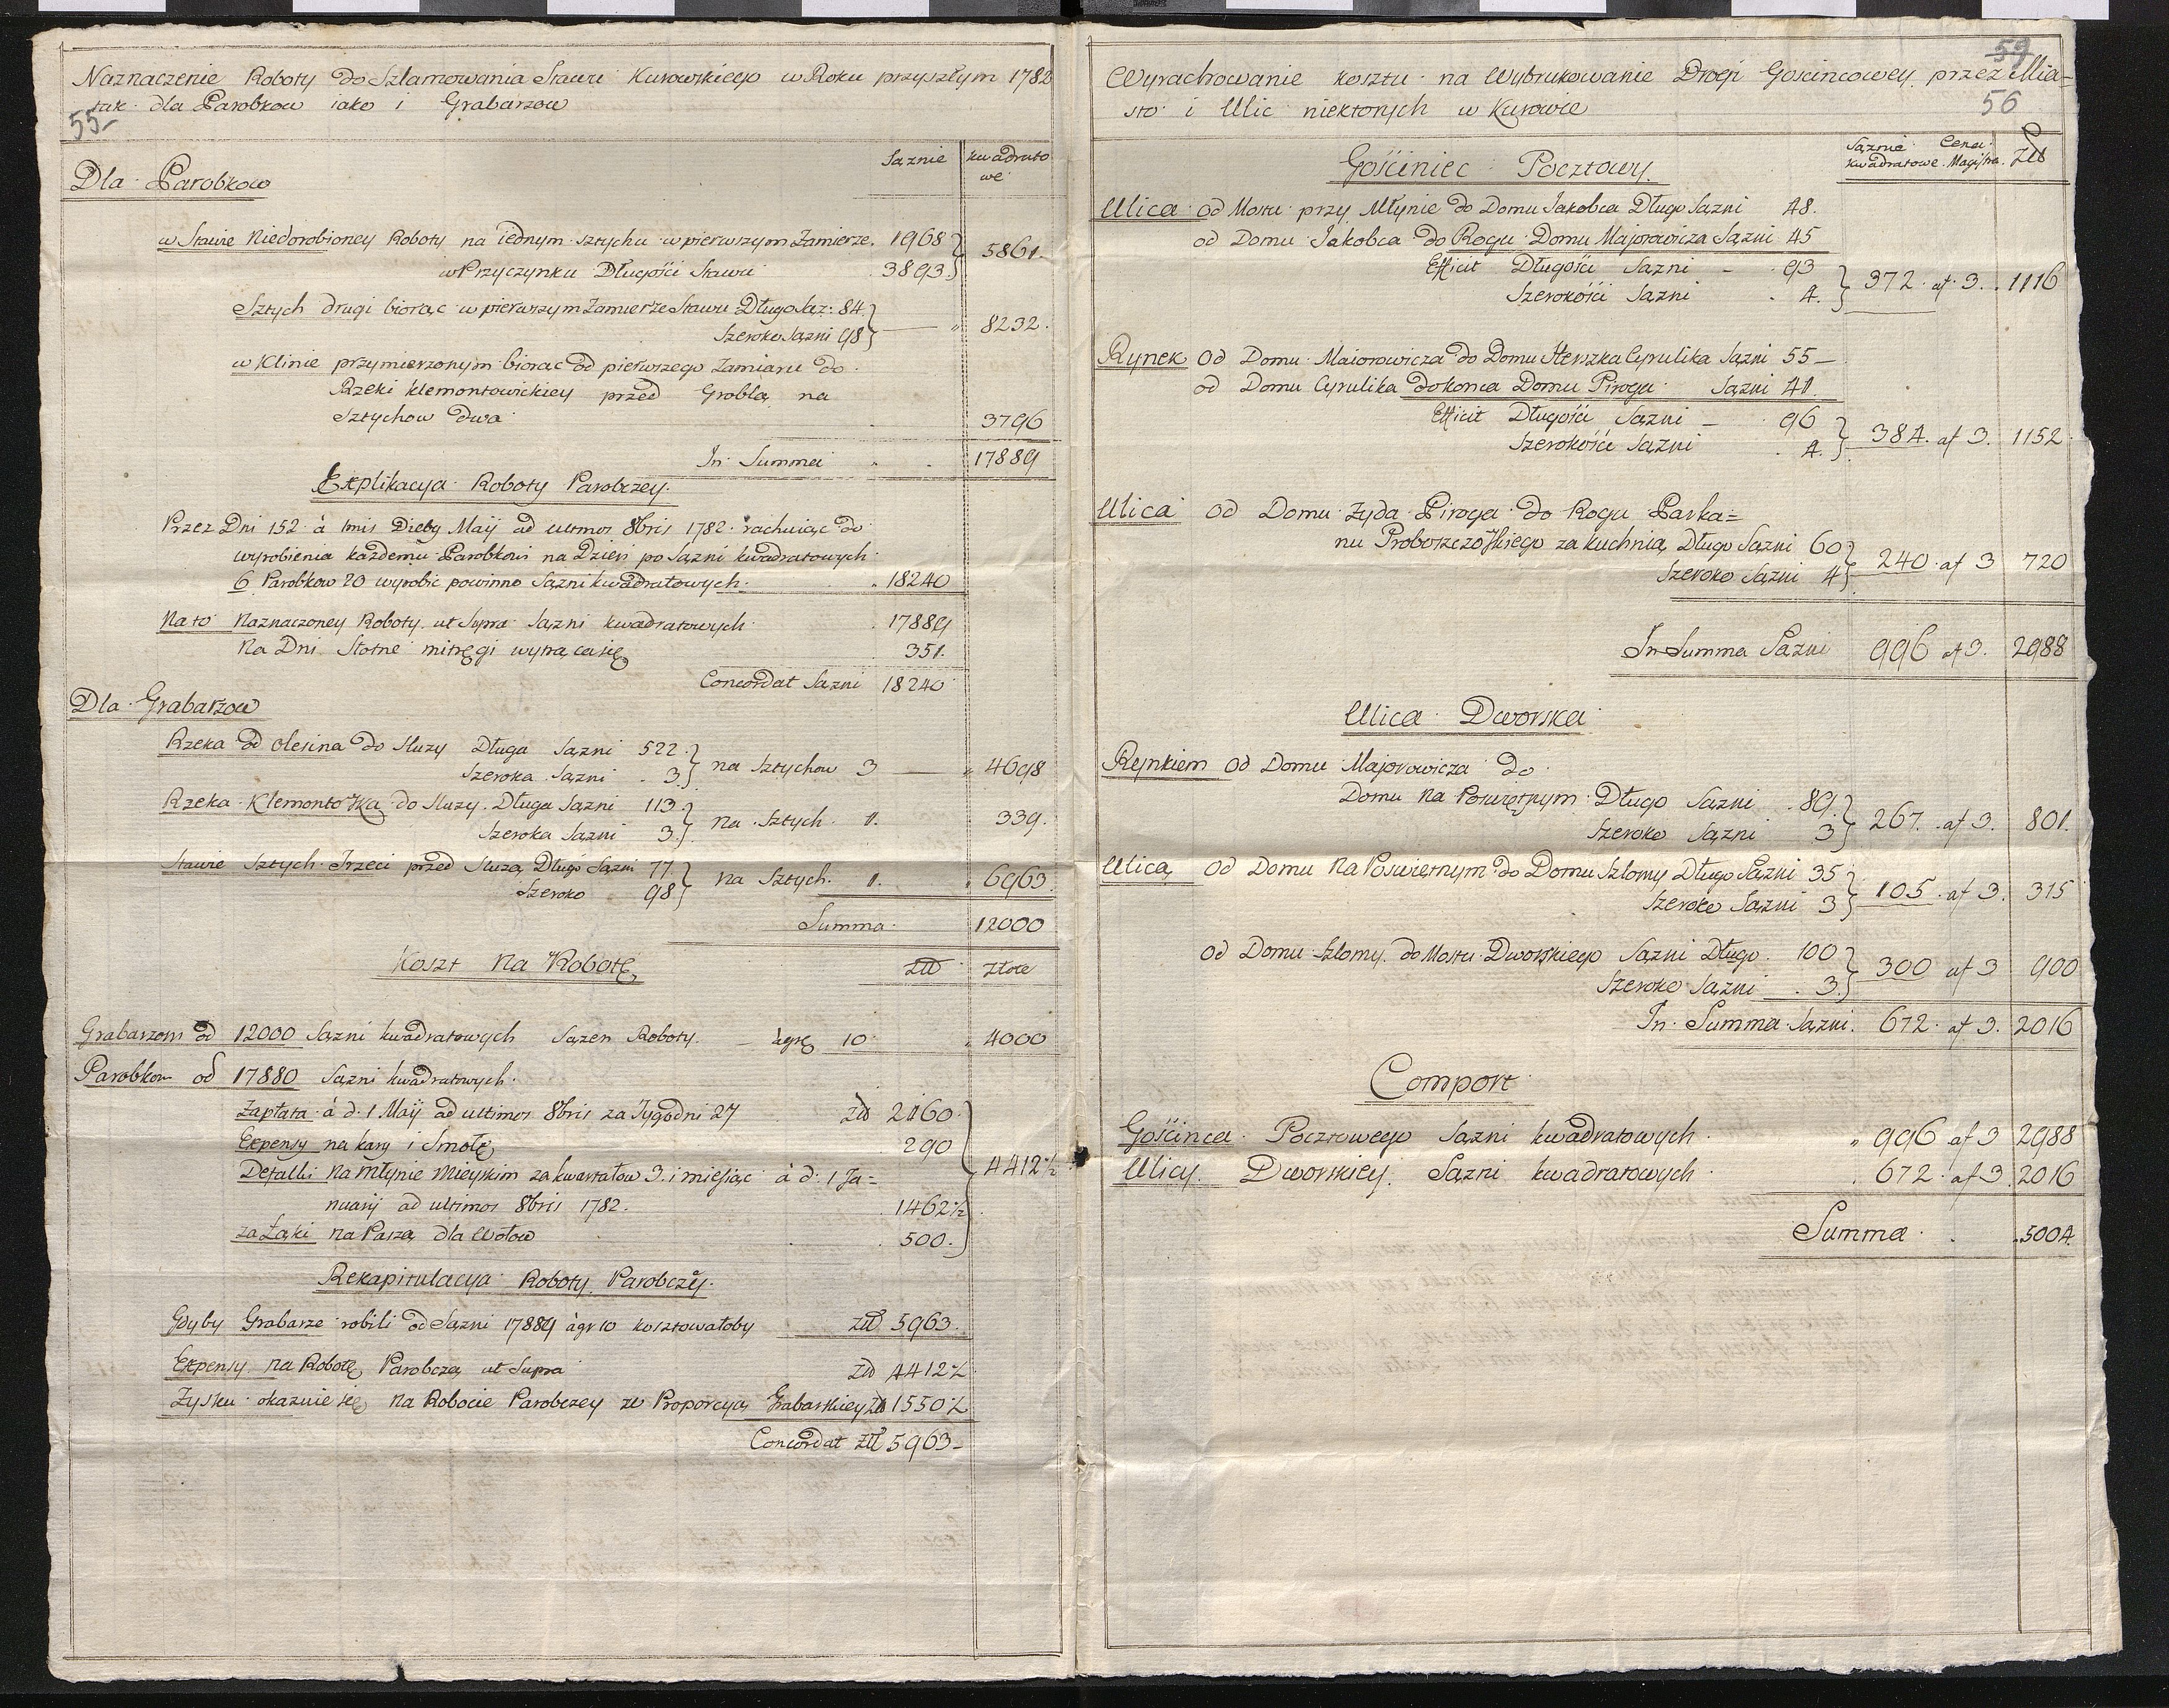 Naznaczenie Roboty do Szlamowania Stawu Kurowskiego w Roku przyszłym 1782
tak dla Parobkow iako i Grabarzow
55
Sążnie kwadrato
we
Dla Parobkow
w Stawie Niedorobioney Roboty na iednym sztychu w pierwszym Zamierze. 1968 } 5861.
w Przyczynku Długości Stawu 3893.
Sztych drugi biorąc w pierwszym Zamierze Stawu Długo Sąz: 84 } 8232.
Szeroko Sązni 98
w Klinie przymierzonym biorąc od pierwszego Zamiaru do
Rzeki Klemontowickiey przed Groblą na
Sztychow dwa 3796
In Summa 17889
Explikacya Roboty Parobczey.
Przez Dni 152 à 1mis Diebg Maÿ ad ultimos 8bris 1782 rachuiąc do
wyrobienia każdemu Parobkowi na Dzień po Sązni kwadratowych
6 Parobkow 20 wyrobic powinno Sązni kwadratowych. 18240
Na to Naznaczoney Roboty ut Supra Sązni kwadratowych 17889
Na Dni Słotne mitręgi wytrąca się 351.
Concordat Sązni 18240
Dla Grabarzow
Rzeka od Olesina do Sluzy Długa Sązni 522 } na Sztychow 3 — 4698
Szeroka Sązni 3
Rzeka Klemontoska do Sluzy. Długa Sązni 113 } na Sztych 1. 339.
Szeroka Sązni 3.
Stawie Sztych Trzeci przed Sluzą Długo Sązni 77 } na Sztych 1. 6963
Szeroko 98
Summa 12000
Koszt na Robotę złł złote
Grabarzom od 12000 Sązni kwadratowych Sązen Roboty — àgrę 10 4000
Parobkom od 17880 Sązni kwadratowych.
Zapłata à d. 1 Maÿ ad ultimos 8bris za Tygodni 27 złł 2160
Expensy na kary i Smołę 290
Defalki na Młynie Mieyskim za kwartałow 3. i miesiąc à d. 1 Ja= } 4412½
nuarÿ ad ultimos 8bris 1782. 1462½
za Łąki na Paszą dla Wołow 500.
Rekapitulacya Roboty Parobczey.
Gdyby Grabarze robili od Sązni 17889 àgr 10 kosztowałoby złł 5963.
Expensy na Robotę Parobczą ut Supra złł 4412½
Zysku okazuie się na Robocie Parobczey w Proporcyą Grabarskiey złł 1550½
Concordat złł 5963—
59
Wyrachowanie kosztu na Wybrukowanie Drogi Goscincowey przez Mia=
sto i Ulic niektorych w Kurowie
56
Sążnie kwadratowe. Cena Magistra. złł
Gościniec Pocztowy.
Ulica od Mostu przy Młynie do Domu Jakobca Długo Sązni 48.
od Domu Jakobca do Rogu Domu Majorowicza Sązni 45
Efficit Długości Sązni — 93 } 372 af 3. 1116
Szerokości Sązni 4.
Rynek od Domu Maiorowicza do Domu Herszka Cyrulika Sązni 55—
od Domu Cyrulika do konca Domu Piroga Sązni 41.
Efficit Długości Sązni — 96 } 384. af 3. 1152
Szerokości Sązni 4.
Ulica od Domu Zyda Piroga do Rogu Parka=
nu Proboszczoskiego za kuchnią Długo Sązni 60 } 240 af 3 720
Szeroko Sązni 4
In Summa Sązni 996 af 3. 2988
Ulica Dworska
Rynkiem od Domu Majorowicza do
Domu na Poswętnym Długo Sązni 89 } 267. af 3. 801.
Szeroko Sązni 3
Ulicą od Domu Na Poswiętnym do Domu Szlomy Długo Sązni 35 } 105 af 3. 315
Szeroko Sązni 3
od Domu Szlomy do Mostu Dworskiego Sązni Długo 100 } 300 af 3 900
Szeroko Sązni 3.
In Summa Sązni. 672. af 3. 2016
Comport
Gościnca Pocztowego Sązni kwadratowych 996 af 3 2988
Ulicy Dworskiey Sązni kwadratowych 672. af 3. 2016
Summa 5004.